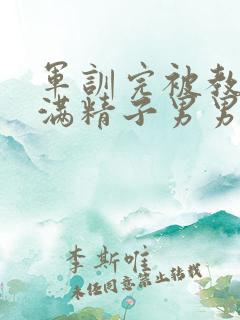 军训完被教
满精子男男
李斯唯
未经同意禁止转载